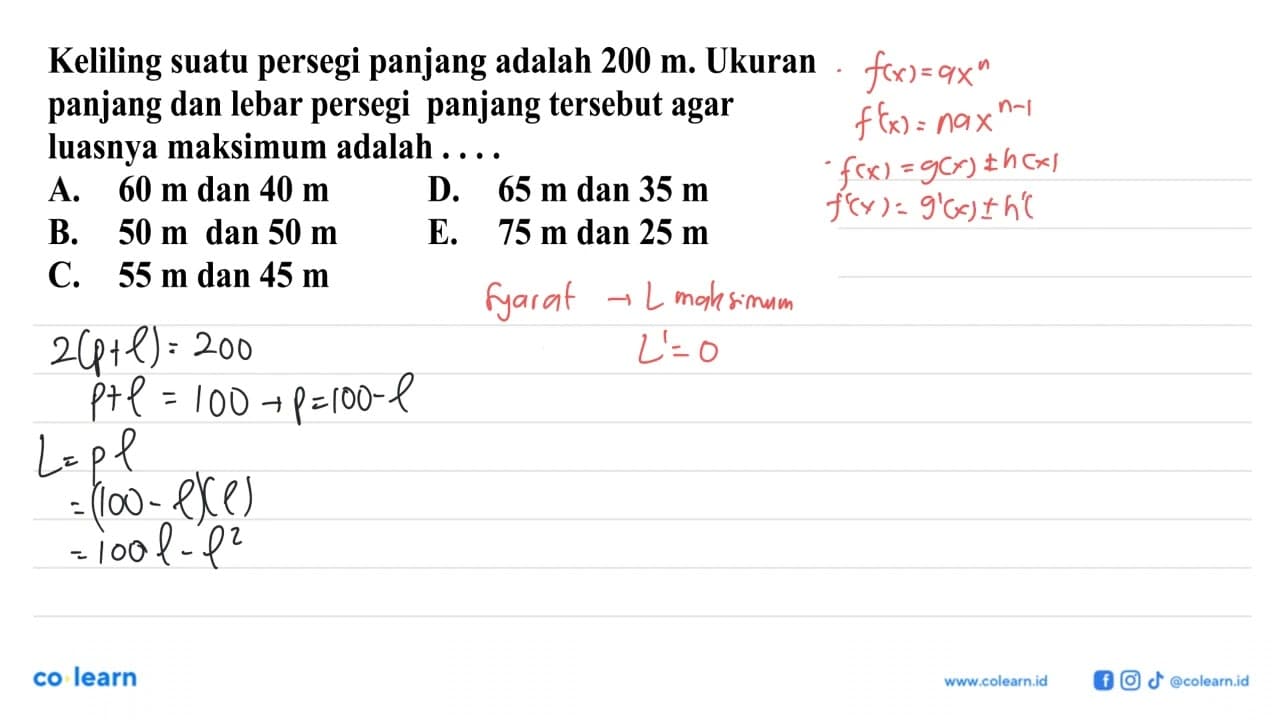 Keliling suatu persegi panjang adalah 200 m. Ukuran
panjang dan lebar persegi panjang tersebut agar
luasnya maksimum adalah . . . .
A. 60 m dan 40 m D. 65 m dan 35 m
B. 50 m dan 50 m E. 75 m dan 25 m
C. 55 m dan 45 m
· f(x) = ax^n
f'(x) = nax^{n-1}
· f(x) = g(x) ± h(x)
f'(x) = g'(x) ± h'(
Syarat → L maksimum
L' = 0
2(p+l) = 200
p+l = 100 → p = 100-l
L = pl
= (100-l)(l)
= 100l - l²
co·learn
www.colearn.id
@colearn.id